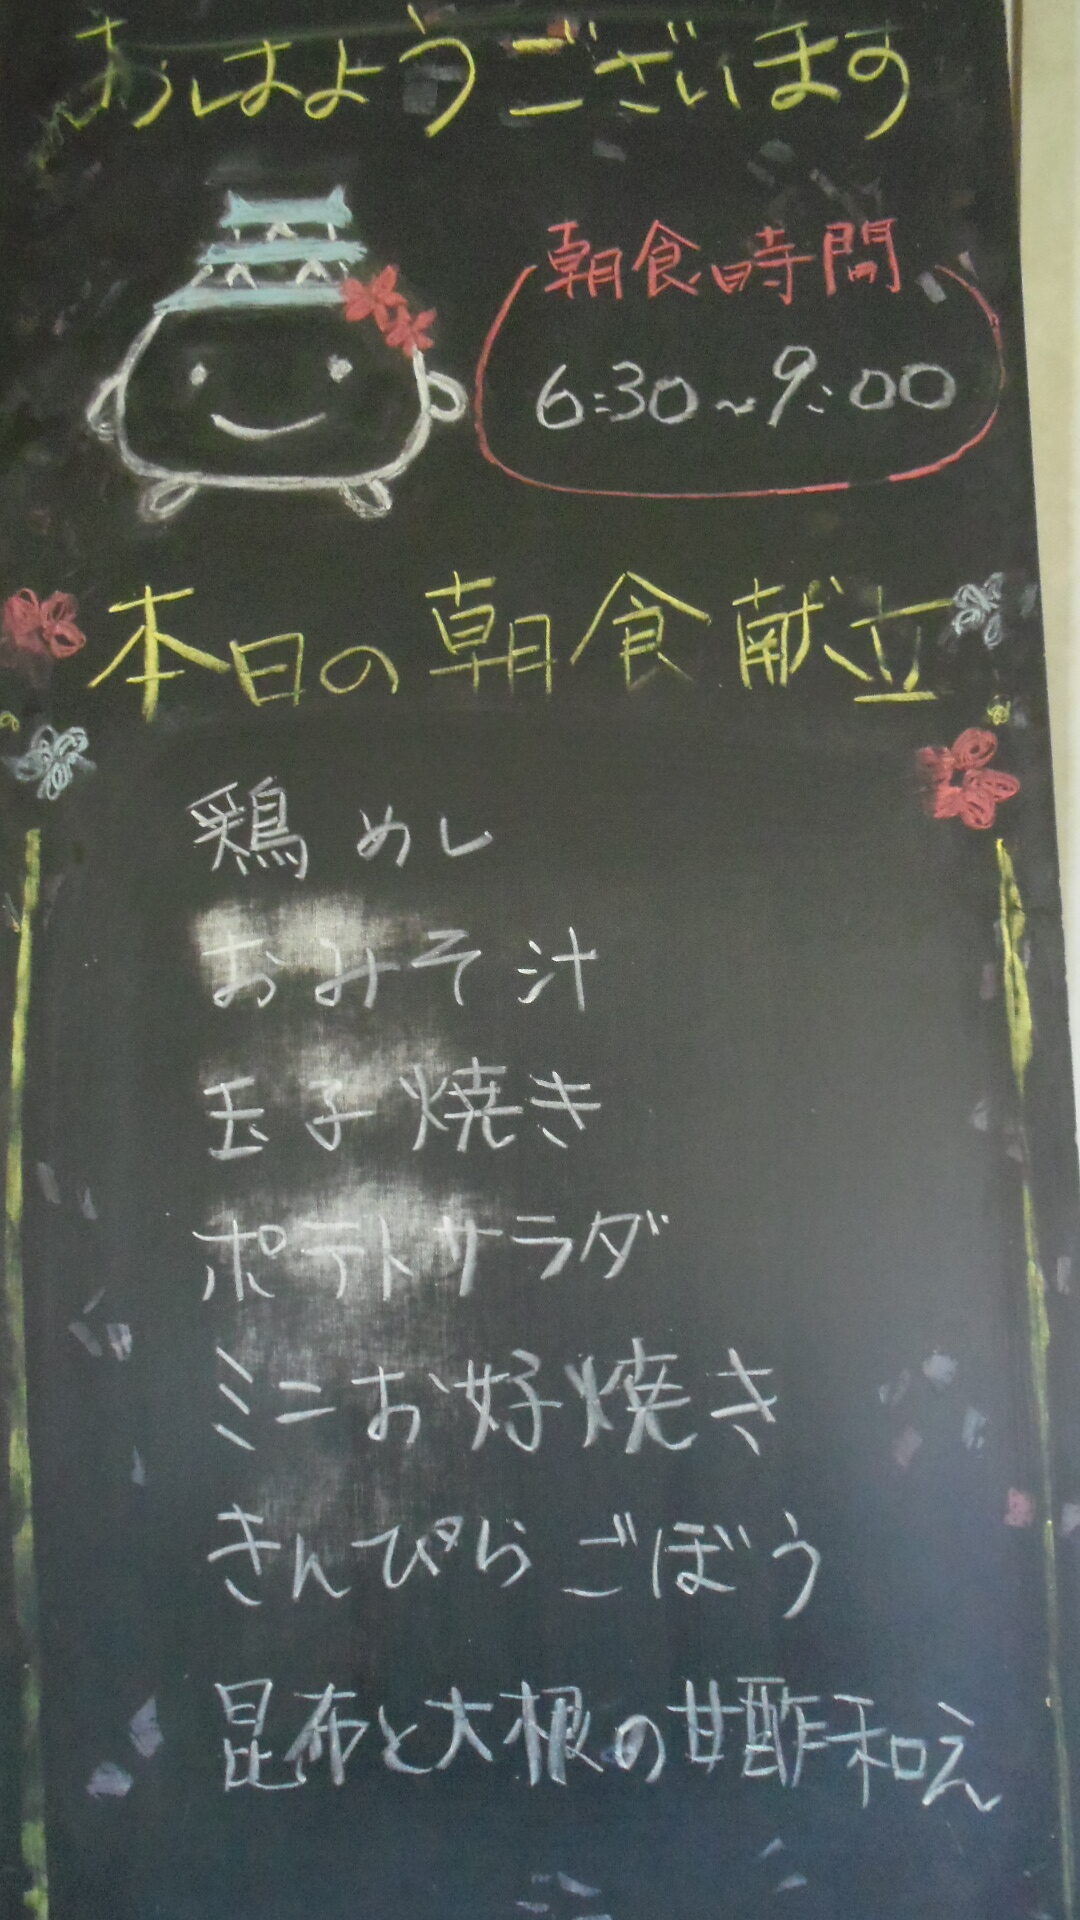 おはようございます
朝食時間
6:30~9:00
本日の朝食献立
鶏めし
おみそ汁
玉子焼き
ポテトサラダ
ミニお好焼き
きんぴらごぼう
昆布と大根の甘酢和え